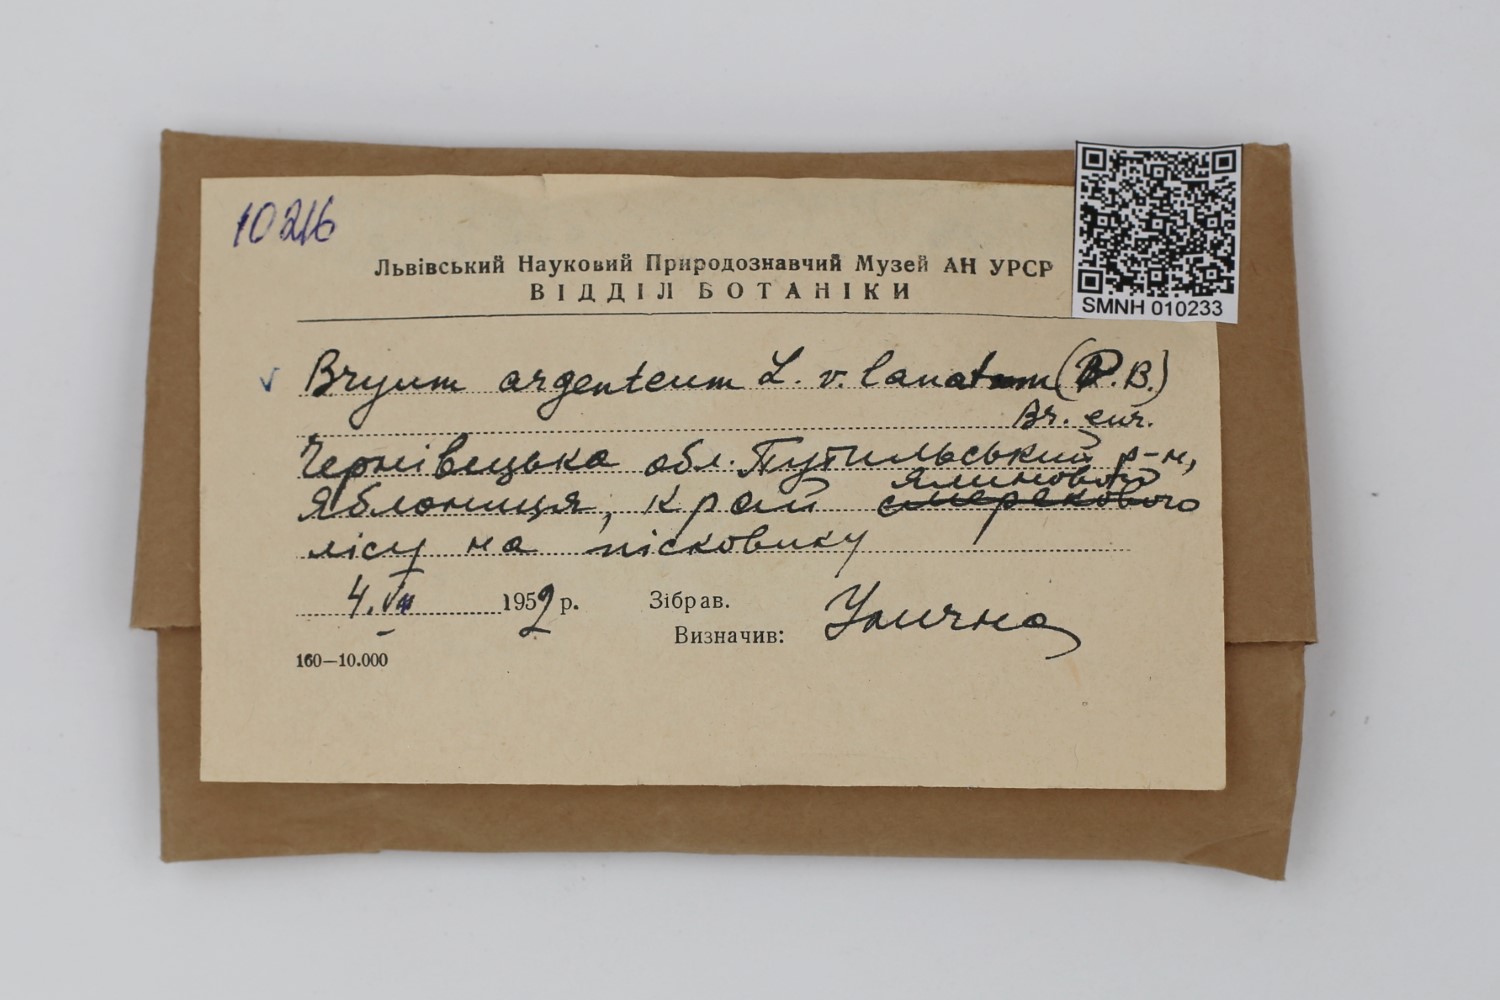 10216
SMNH 010233
Львівський Науковий Природознавчий Музей АН УРСР
ВІДДІЛ БОТАНІКИ
v Bryum argenteum L. v. lanatum (P.B.)
Br. eur.
Чернівецька обл. Путильський р-н,
ялинового
Яблониця, край смерекового
лісу на пісковику
4. VII 1952 р. Зібрав.
Визначив: Улична
160—10.000